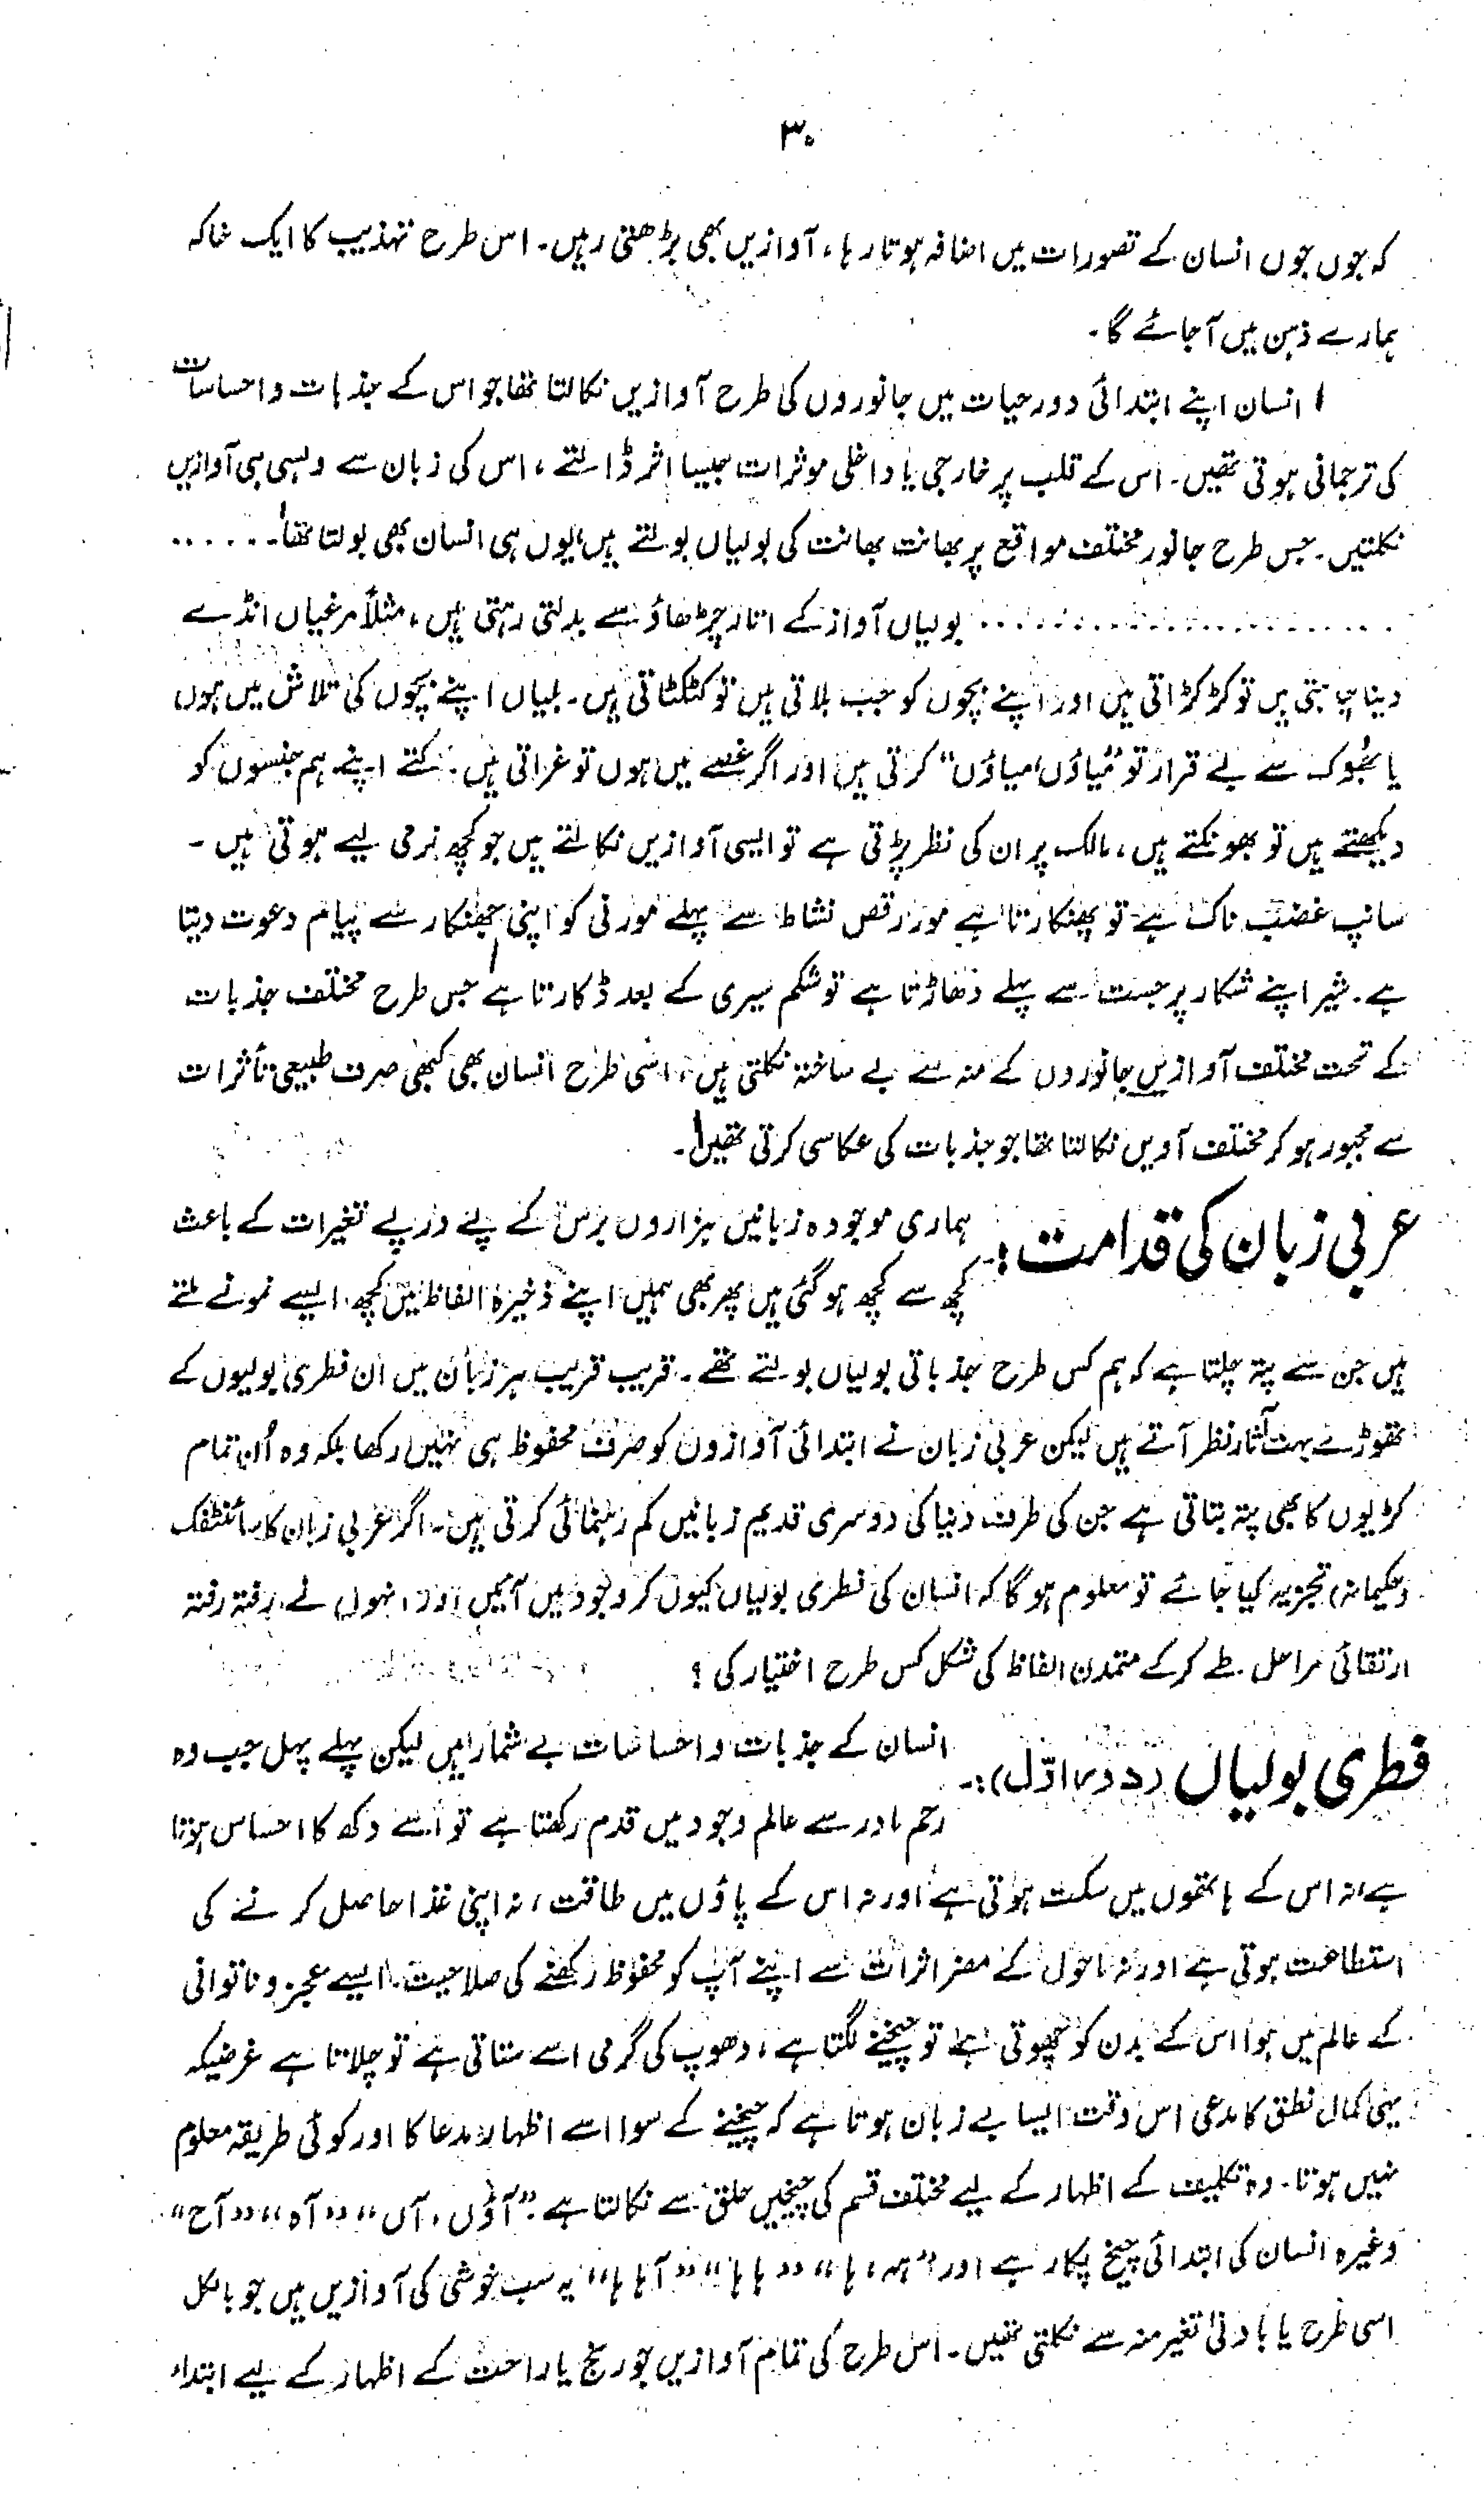 ۳۰
کہ جوں جوں انسان کے تصورات میں اضافہ ہوتا رہا، آوازیں بھی بڑھتی رہیں۔ اس طرح تہذیب کا ایک خاکہ
ہمارے ذہن میں آجائے گا۔
انسان اپنے ابتدائی دور حیات میں جانوروں کی طرح آوازیں نکالتا تھا جو اس کے جذبات و احساسات
کی ترجمانی ہوتی تھیں۔ اس کے قلب پر خارجی یا داخلی موثرات جیسا اثر ڈالتے، اس کی زبان سے ویسی ہی آوازیں
نکلتیں۔ جس طرح جانور مختلف مواقع پر بھانت بھانت کی بولیاں بولتے ہیں، یوں ہی انسان بھی بولتا تھا۔......
....................... بولیاں آواز کے اتار چڑھاؤ سے بدلتی رہتی ہیں، مثلاً مرغیاں انڈے
دینا چاہتی ہیں تو کڑکڑاتی ہیں اور اپنے بچوں کو جب بلاتی ہیں تو کٹکٹاتی ہیں۔ بلیاں اپنے بچوں کی تلاش میں ہوں
یا بھُوک سے بے قرار تو ”میاؤں، میاؤں“ کرتی ہیں اور اگر غصے میں ہوں تو غراتی ہیں۔ کتے اپنے ہم جنسوں کو
دیکھتے ہیں تو بھونکتے ہیں، مالک پر ان کی نظر پڑتی ہے تو ایسی آوازیں نکالتے ہیں جو کچھ نرمی لیے ہوتی ہیں۔
سانپ غضب ناک ہے تو پھنکارتا ہے مور رقص نشاط سے پہلے مورنی کو اپنی جھنکار سے پیام دعوت دیتا
ہے۔ شیر اپنے شکار پر جست سے پہلے دھاڑتا ہے تو شکم سیری کے بعد ڈکارتا ہے جس طرح مختلف جذبات
کے تحت مختلف آوازیں جانوروں کے منہ سے بے ساختہ نکلتی ہیں، اسی طرح انسان بھی کبھی صرف طبیعی تأثرات
سے مجبور ہو کر مختلف آویں نکالتا تھا جو جذبات کی عکاسی کرتی تھیں۔
عربی زبان کی قدامت: ہماری موجودہ زبانیں ہزاروں برس کے پے در پے تغیرات کے باعث
کچھ سے کچھ ہو گئی ہیں پھر بھی ہمیں اپنے ذخیرۂ الفاظ میں کچھ ایسے نمونے ملتے
ہیں جن سے پتہ چلتا ہے کہ ہم کس طرح جذباتی بولیاں بولتے تھے۔ قریب قریب ہر زبان میں ان فطری بولیوں کے
تھوڑے بہت آثار نظر آتے ہیں لیکن عربی زبان نے ابتدائی آوازوں کو صرف محفوظ ہی نہیں رکھا بلکہ وہ اُن تمام
کڑیوں کا بھی پتہ بتاتی ہے جن کی طرف دنیا کی دوسری قدیم زبانیں کم رہنمائی کرتی ہیں۔ اگر عربی زبان کا سائنٹفک
(حکیمانہ) تجزیہ کیا جائے تو معلوم ہوگا کہ انسان کی فطری بولیاں کیوں کر وجود میں آئیں اور انہوں نے رفتہ رفتہ
ارتقائی مراحل طے کر کے متمدن الفاظ کی شکل کس طرح اختیار کی؟
فطری بولیاں (دورِ اوّل):۔ انسان کے جذبات و احساسات بے شمار ہیں لیکن پہلے پہل جب وہ
رحم مادر سے عالم وجود میں قدم رکھتا ہے تو اُسے دکھ کا احساس ہوتا
ہے، نہ اس کے ہاتھوں میں سکت ہوتی ہے اور نہ اس کے پاؤں میں طاقت، نہ اپنی غذا حاصل کرنے کی
استطاعت ہوتی ہے اور نہ ماحول کے مضر اثرات سے اپنے آپ کو محفوظ رکھنے کی صلاحیت۔ ایسے عجز و ناتوانی
کے عالم میں ہوا اس کے بدن کو چھوتی ہے تو چیخنے لگتا ہے، دھوپ کی گرمی اسے ستاتی ہے تو چلاتا ہے غرضیکہ
یہی کمال نطق کا مدعی اس وقت ایسا بے زبان ہوتا ہے کہ چیخنے کے سوا اسے اظہار مدعا کا اور کوئی طریقہ معلوم
نہیں ہوتا۔ وہ تکلیف کے اظہار کے لیے مختلف قسم کی چیخیں حلق سے نکالتا ہے۔ ”آؤں، آں“ ”آہ“ ”آح“
وغیرہ انسان کی ابتدائی چیخ پکار ہے اور ”ہہ، ہا“ ”ہا ہا“ ”آہا ہا“ یہ سب خوشی کی آوازیں ہیں جو بالکل
اسی طرح یا بادنیٰ تغیر منہ سے نکلتی تھیں۔ اس طرح کی تمام آوازیں جو رنج یا راحت کے اظہار کے لیے ابتداء